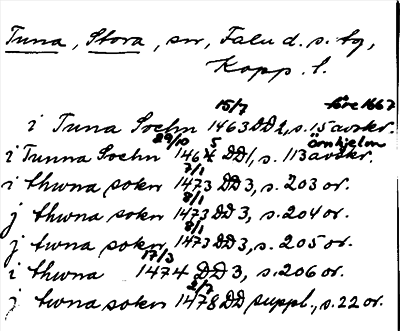 Tuna, Stora, sn, Falu d. s. tg,
Kopp. l.
15/7 före 1667
i Tuna Sochn 1463 DD 2, s. 15 avskr.
29/10 5 Örnhjelm
i Tunna Sochn 1464 DD 1, s. 113 avskr.
7/1
i thwna sokn 1473 DD 3, s. 203 or.
8/1
j thwna sokn 1473 DD 3, s. 204 or.
8/1
j twna sokn 1473 DD 3, s. 205 or.
17/3
i thwna 1474 DD 3, s. 206 or.
2/7
j twna sokn 1478 DD suppl., s. 22 or.